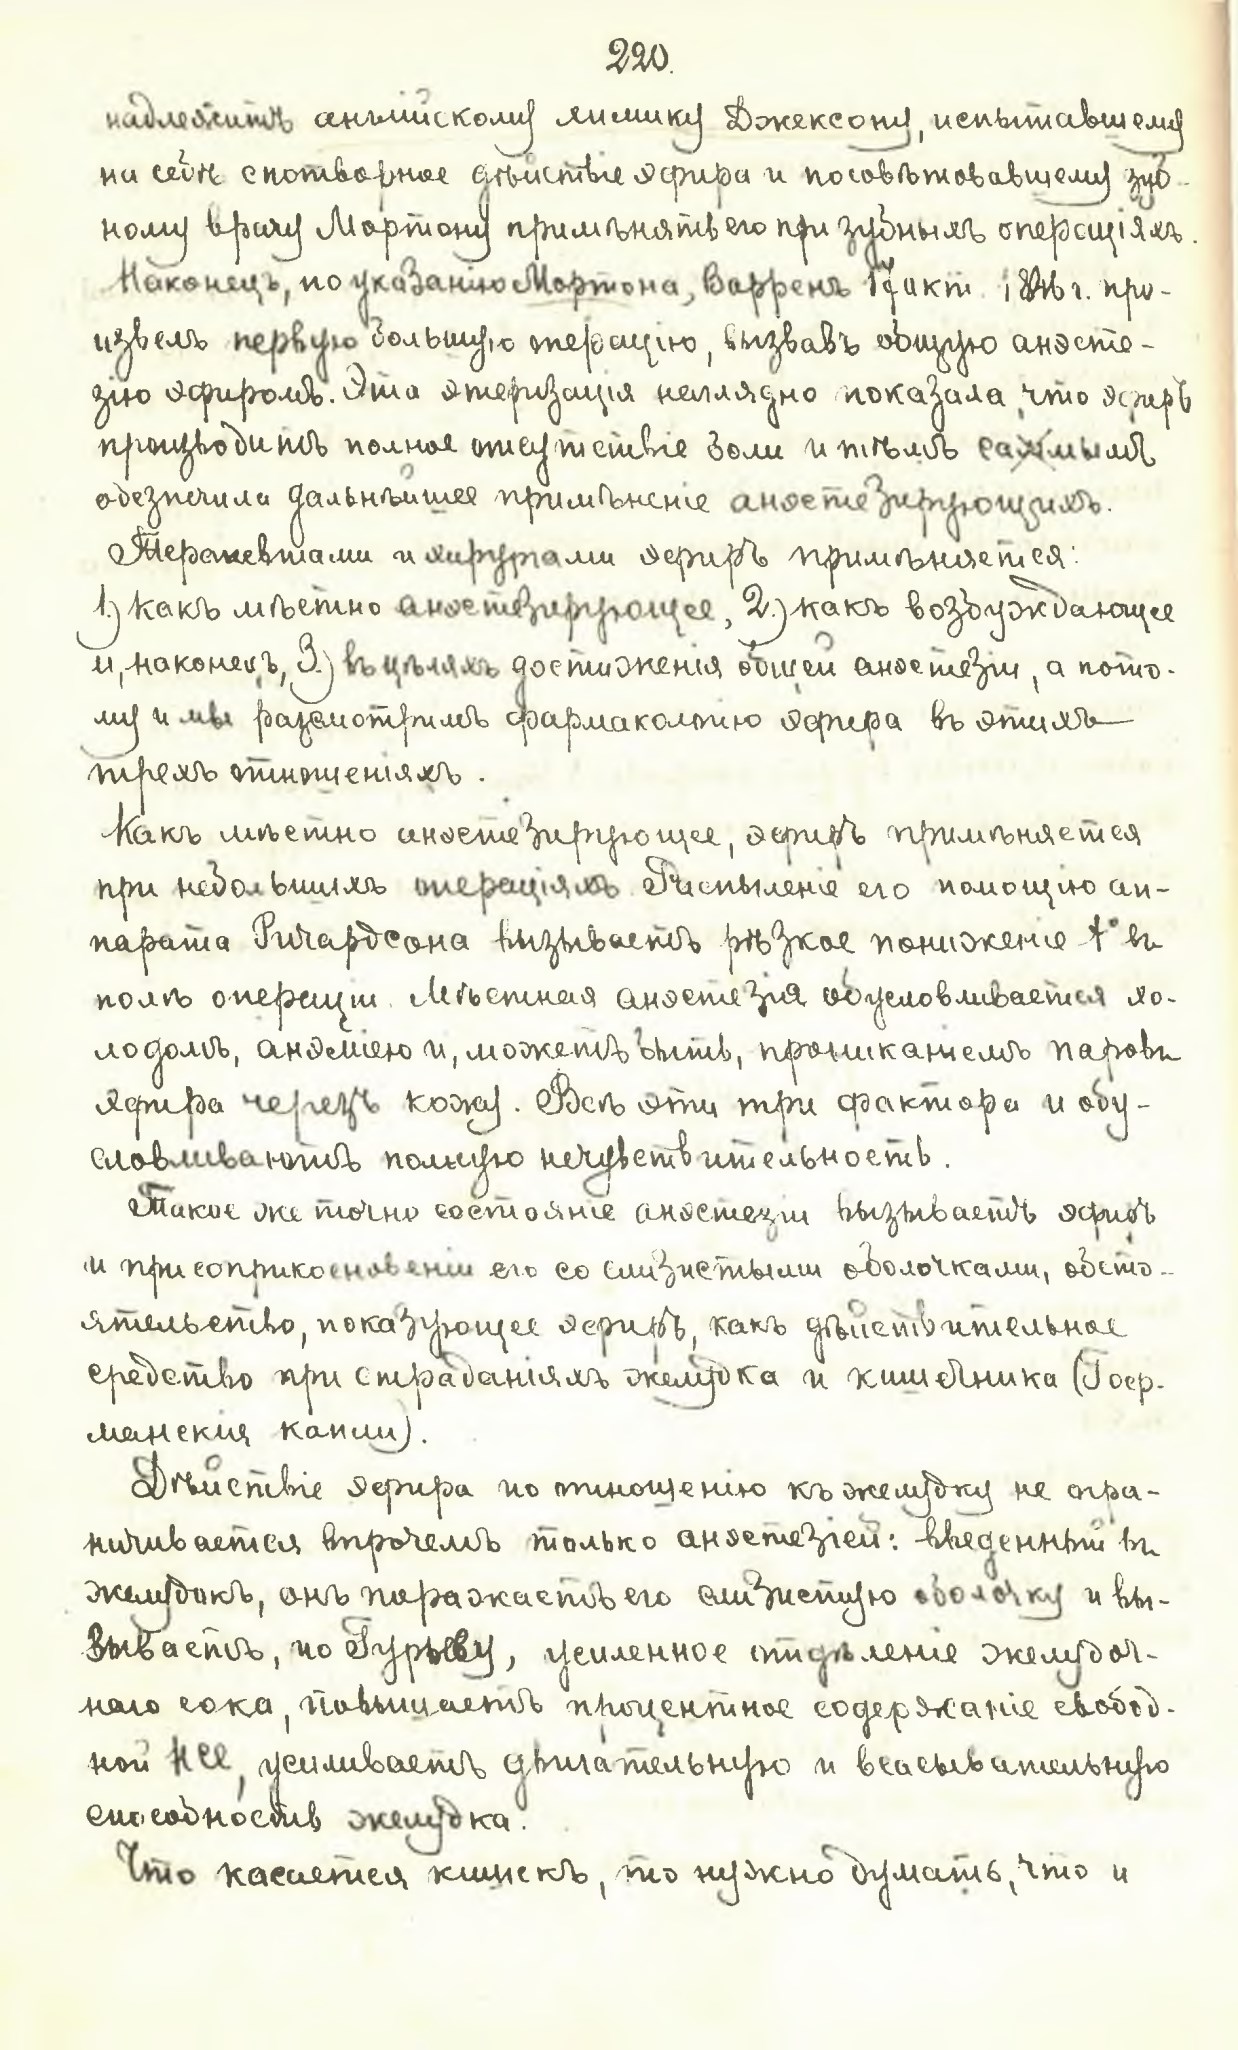 220.
надлежитъ англійскому химику Джексону, испытавшему
на себѣ снотворное дѣйствіе эфира и посовѣтовавшему зуб-
ному врачу Мортону примѣнять его при зубныхъ операціяхъ.
Наконецъ, по указанію Мортона, Варренъ 17 окт. 1846 г. про-
извелъ первую большую операцію, вызвавъ общую анэсте-
зію эфиромъ. Эта этеризація наглядно показала, что эфиръ
производитъ полное отсутствіе боли и тѣмъ самымъ
обезпечила дальнѣйшее примѣненіе анэстезирующихъ.
Терапевтами и хирургами эфиръ примѣняется:
1.) какъ мѣстно анэстезирующее, 2.) какъ возбуждающее
и, наконецъ, 3.) въ цѣляхъ достиженія общей анэстезіи, а пото-
му и мы разсмотримъ фармакологію эфира въ этихъ
трехъ отношеніяхъ.
Какъ мѣстно анэстезирующее, эфиръ примѣняется
при небольшихъ операціяхъ. Распыленіе его помощію ап-
парата Ричардсона вызываетъ рѣзкое пониженіе t° въ
полѣ операціи. Мѣстная анэстезія обусловливается хо-
лодомъ, анэміею и, можетъ быть, прониканіемъ паровъ
эфира черезъ кожу. Всѣ эти три фактора и обу-
словливаютъ полную нечувствительность.
Такое же точно состояніе анэстезіи вызываетъ эфиръ
и при соприкосновеніи его со слизистыми оболочками, обсто-
ятельство, показующее эфиръ, какъ дѣйствительное
средство при страданіяхъ желудка и кишечника (Гоф-
манскія капли).
Дѣйствіе эфира по отношенію къ желудку не огра-
ничивается впрочемъ только анэстезіей: введенный въ
желудокъ, онъ поражаетъ его слизистую оболочку и вы-
зываетъ, по Гурьеву, усиленное отдѣленіе желудоч-
наго сока, повышаетъ процентное содержаніе свобод-
ной HCl, усиливаетъ двигательную и всасывательную
способность желудка.
Что касается кишекъ, то нужно думать, что и